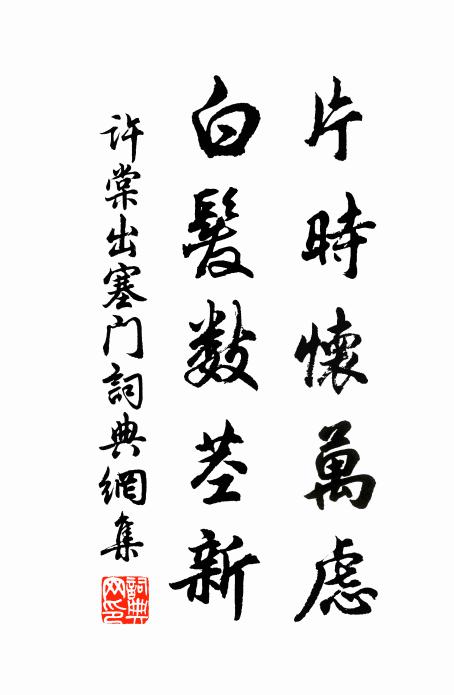 片時懷萬慮
白髮數莖新
許棠出塞门詞典網集
詞典网印